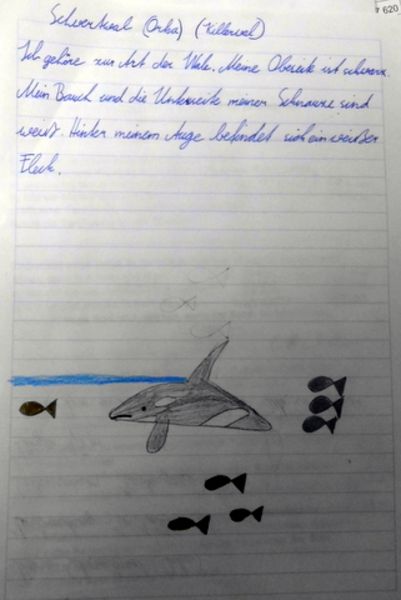 Schwertwal (Orka) (Killerwal)
Ich gehöre zur Art der Wale. Meine Oberseite ist schwarz.
Mein Bauch und die Unterseite meiner Schnauze sind
weiß. Hinter meinem Auge befindet sich ein weißer
Fleck.
r 620